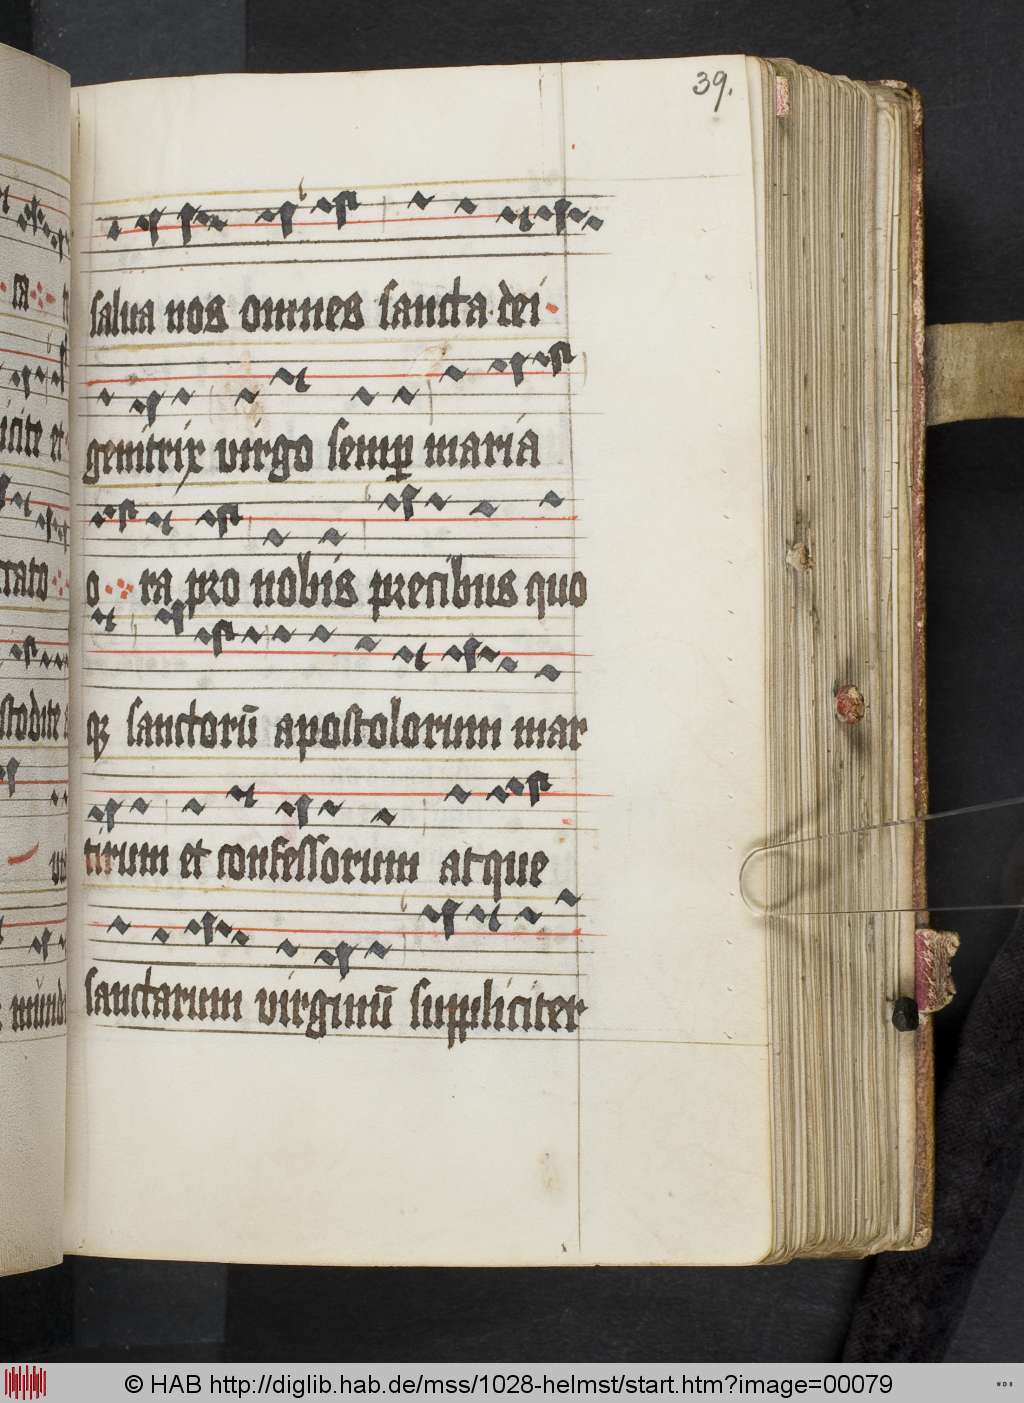 39.
salua nos omnes sancta dei
genitrix virgo semꝑ maria
o ra pro nobis precibus quo
qꝫ sanctorū apostolorum mar
tirum et confessorum atque
sanctarum virginū suppliciter
icite et
rato
stodite
mūnd
© HAB http://diglib.hab.de/mss/1028-helmst/start.htm?image=00079